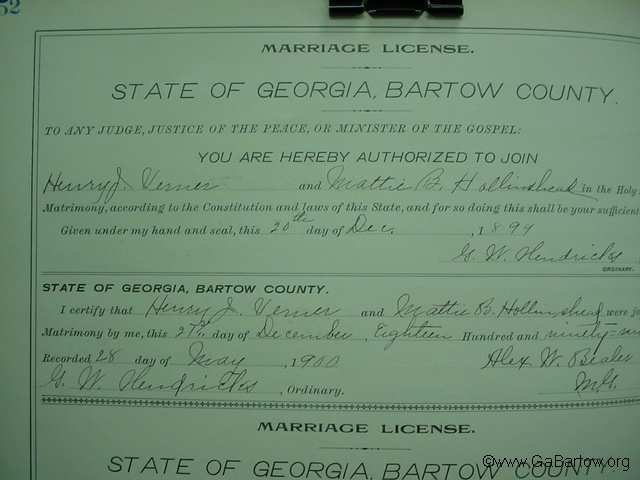 52
MARRIAGE LICENSE.
STATE OF GEORGIA, BARTOW COUNTY.
TO ANY JUDGE, JUSTICE OF THE PEACE, OR MINISTER OF THE GOSPEL:
YOU ARE HEREBY AUTHORIZED TO JOIN
Henry J. Verner and Mattie B. Hollinshead in the Holy
Matrimony, according to the Constitution and laws of this State, and for so doing this shall be your sufficient
Given under my hand and seal, this 20th day of Dec. , 1899
G. W. Hendricks
ORDINARY.
STATE OF GEORGIA, BARTOW COUNTY.
I certify that Henry J. Verner and Mattie B. Hollinshead were jo
Matrimony by me, this 27th day of December, Eighteen Hundred and ninety=nin
Recorded 28 day of May , 1900 Alex. W. Bealer
G. W. Hendricks , Ordinary. M.G.
MARRIAGE LICENSE.
STATE OF GEORGIA, BARTOW COUNTY.
©www.GaBartow.org